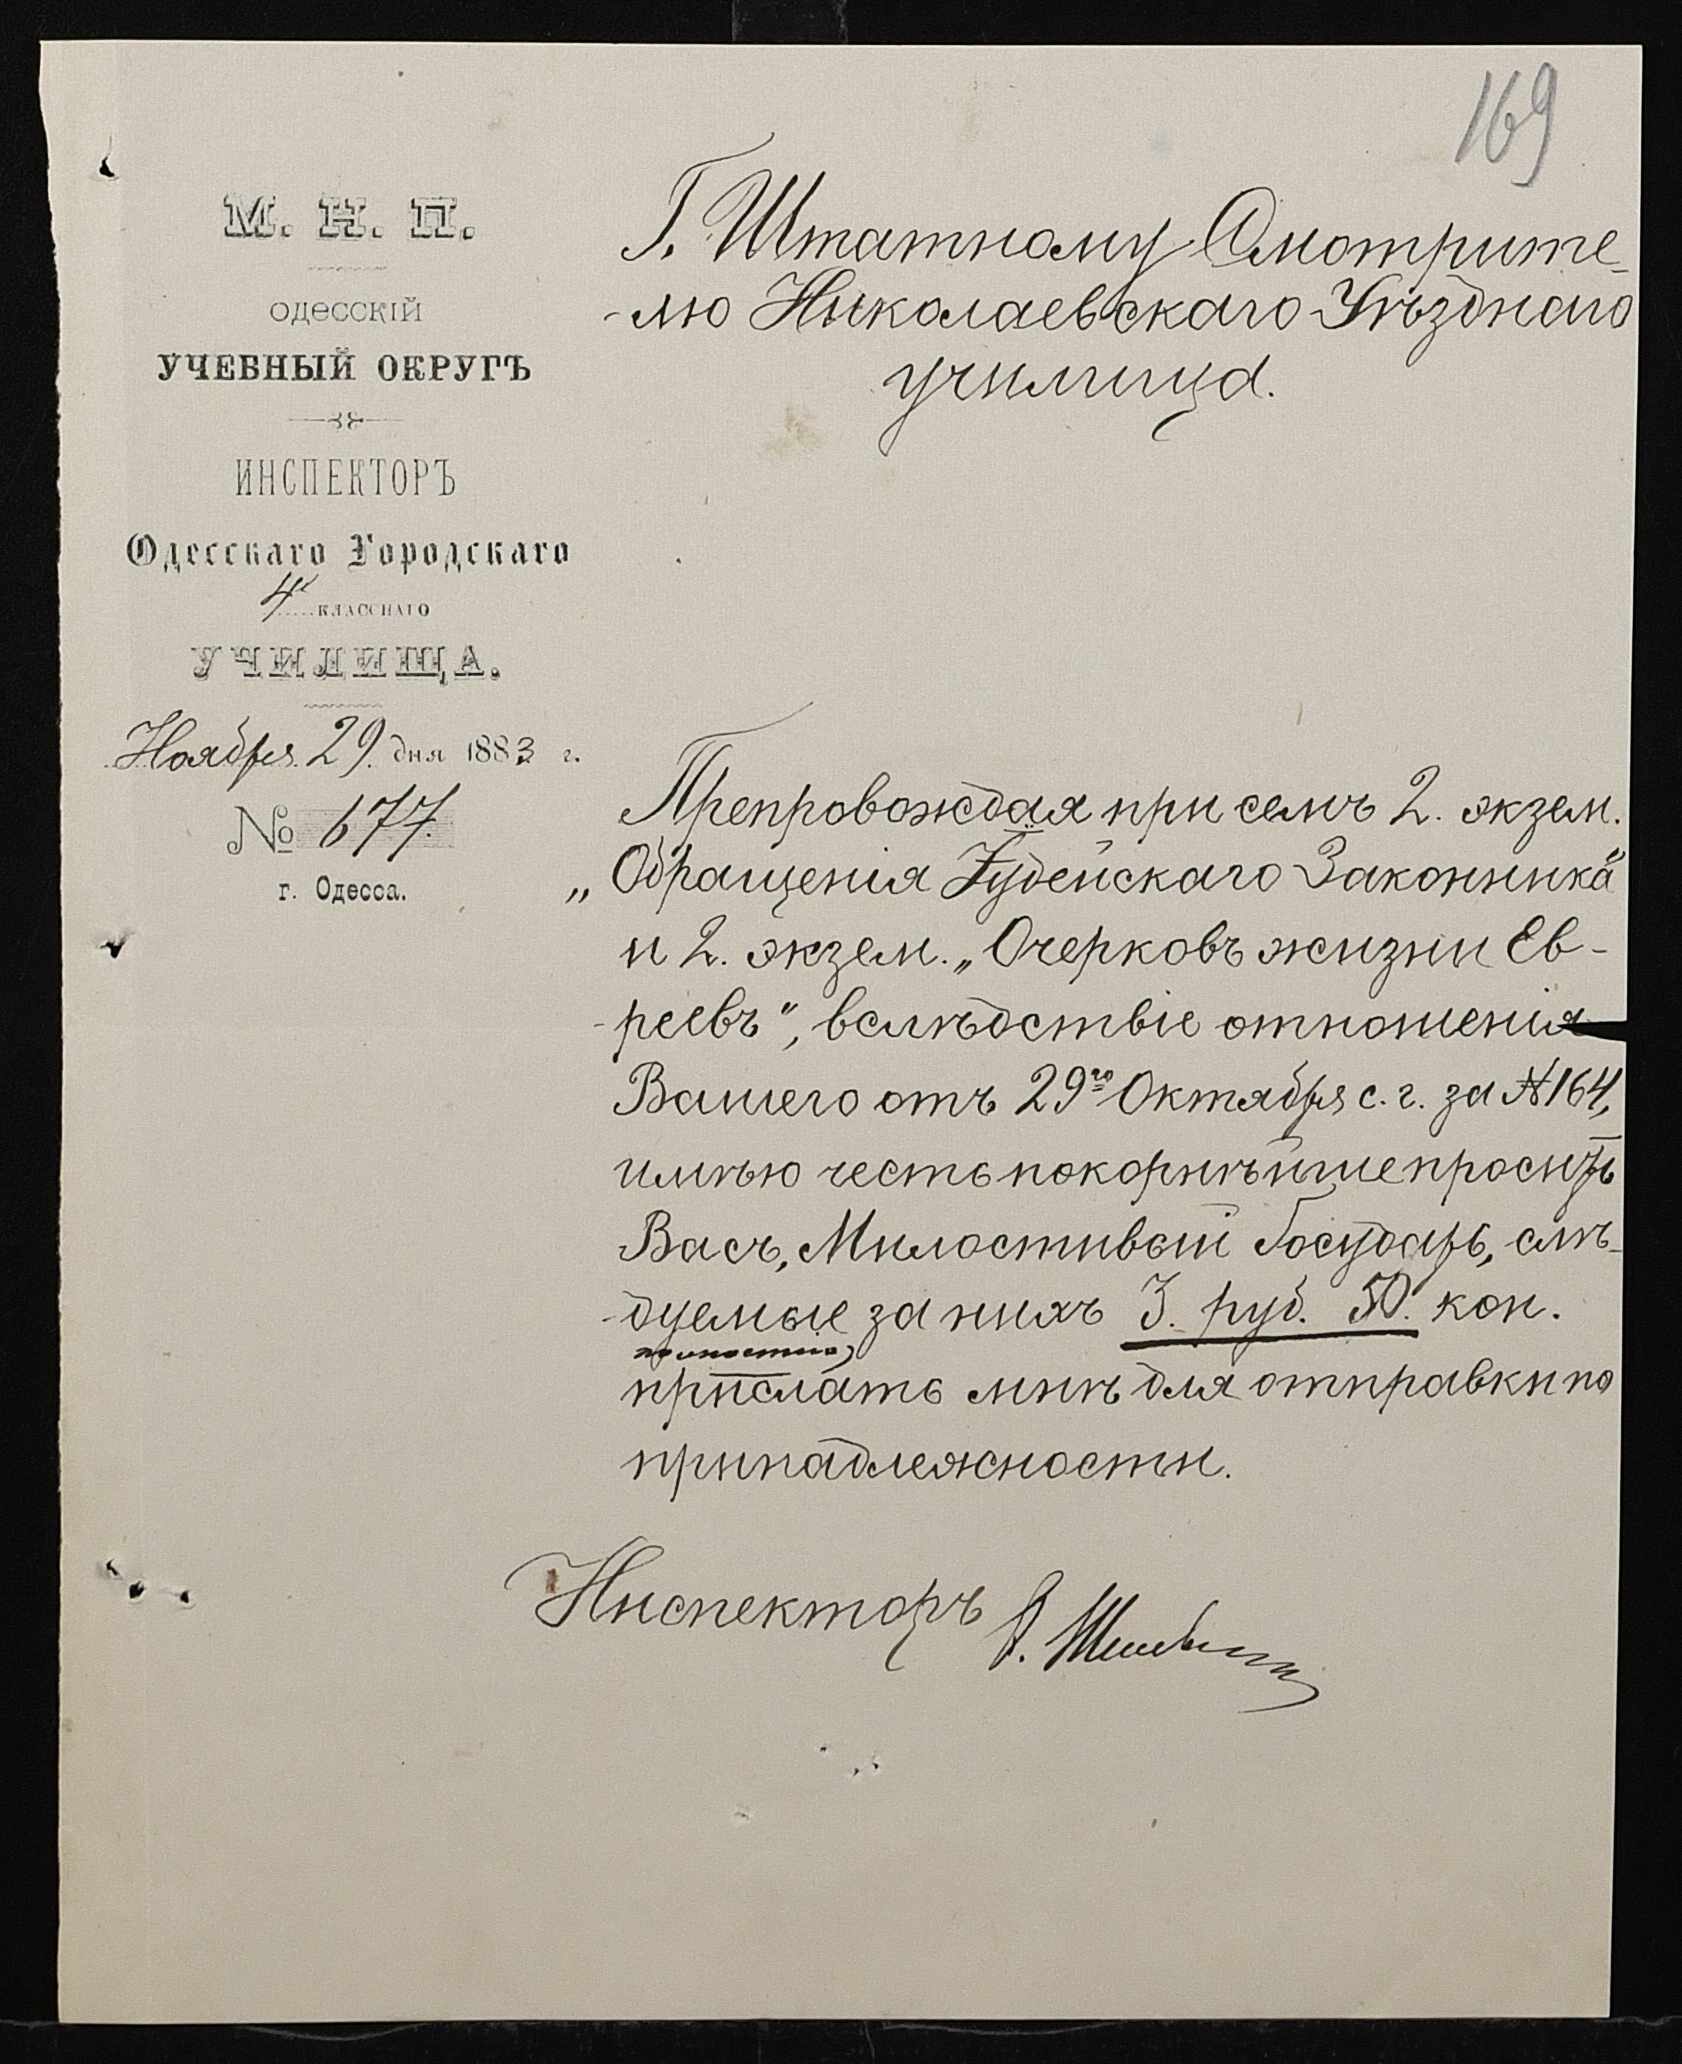 169
М. Н. П.
ОДЕССКІЙ
УЧЕБНЫЙ ОКРУГЪ
ИНСПЕКТОРЪ
Одесскаго Городскаго
4х КЛАССНАГО
УЧИЛИЩА.
Ноября 29 дня 1883 г.
№ 677.
г. Одесса.
Г. Штатному Смотрите-
-лю Николаевскаго Уѣзднаго
училища.
Препровождая при семъ 2. экзем.
„Обращенія Іудейскаго Законника"
и 2. экзем. „Очерковъ жизни Ев-
-реевъ", вслѣдствіе отношенія
Вашего отъ 29го Октября с. г. за № 164,
имѣю честь покорнѣйше просить
Васъ, Милостивый Государь, слѣ-
-дуемые за нихъ 3. руб. 50. коп.
прислать мнѣ для отправки по
принадлежности.
Инспекторъ